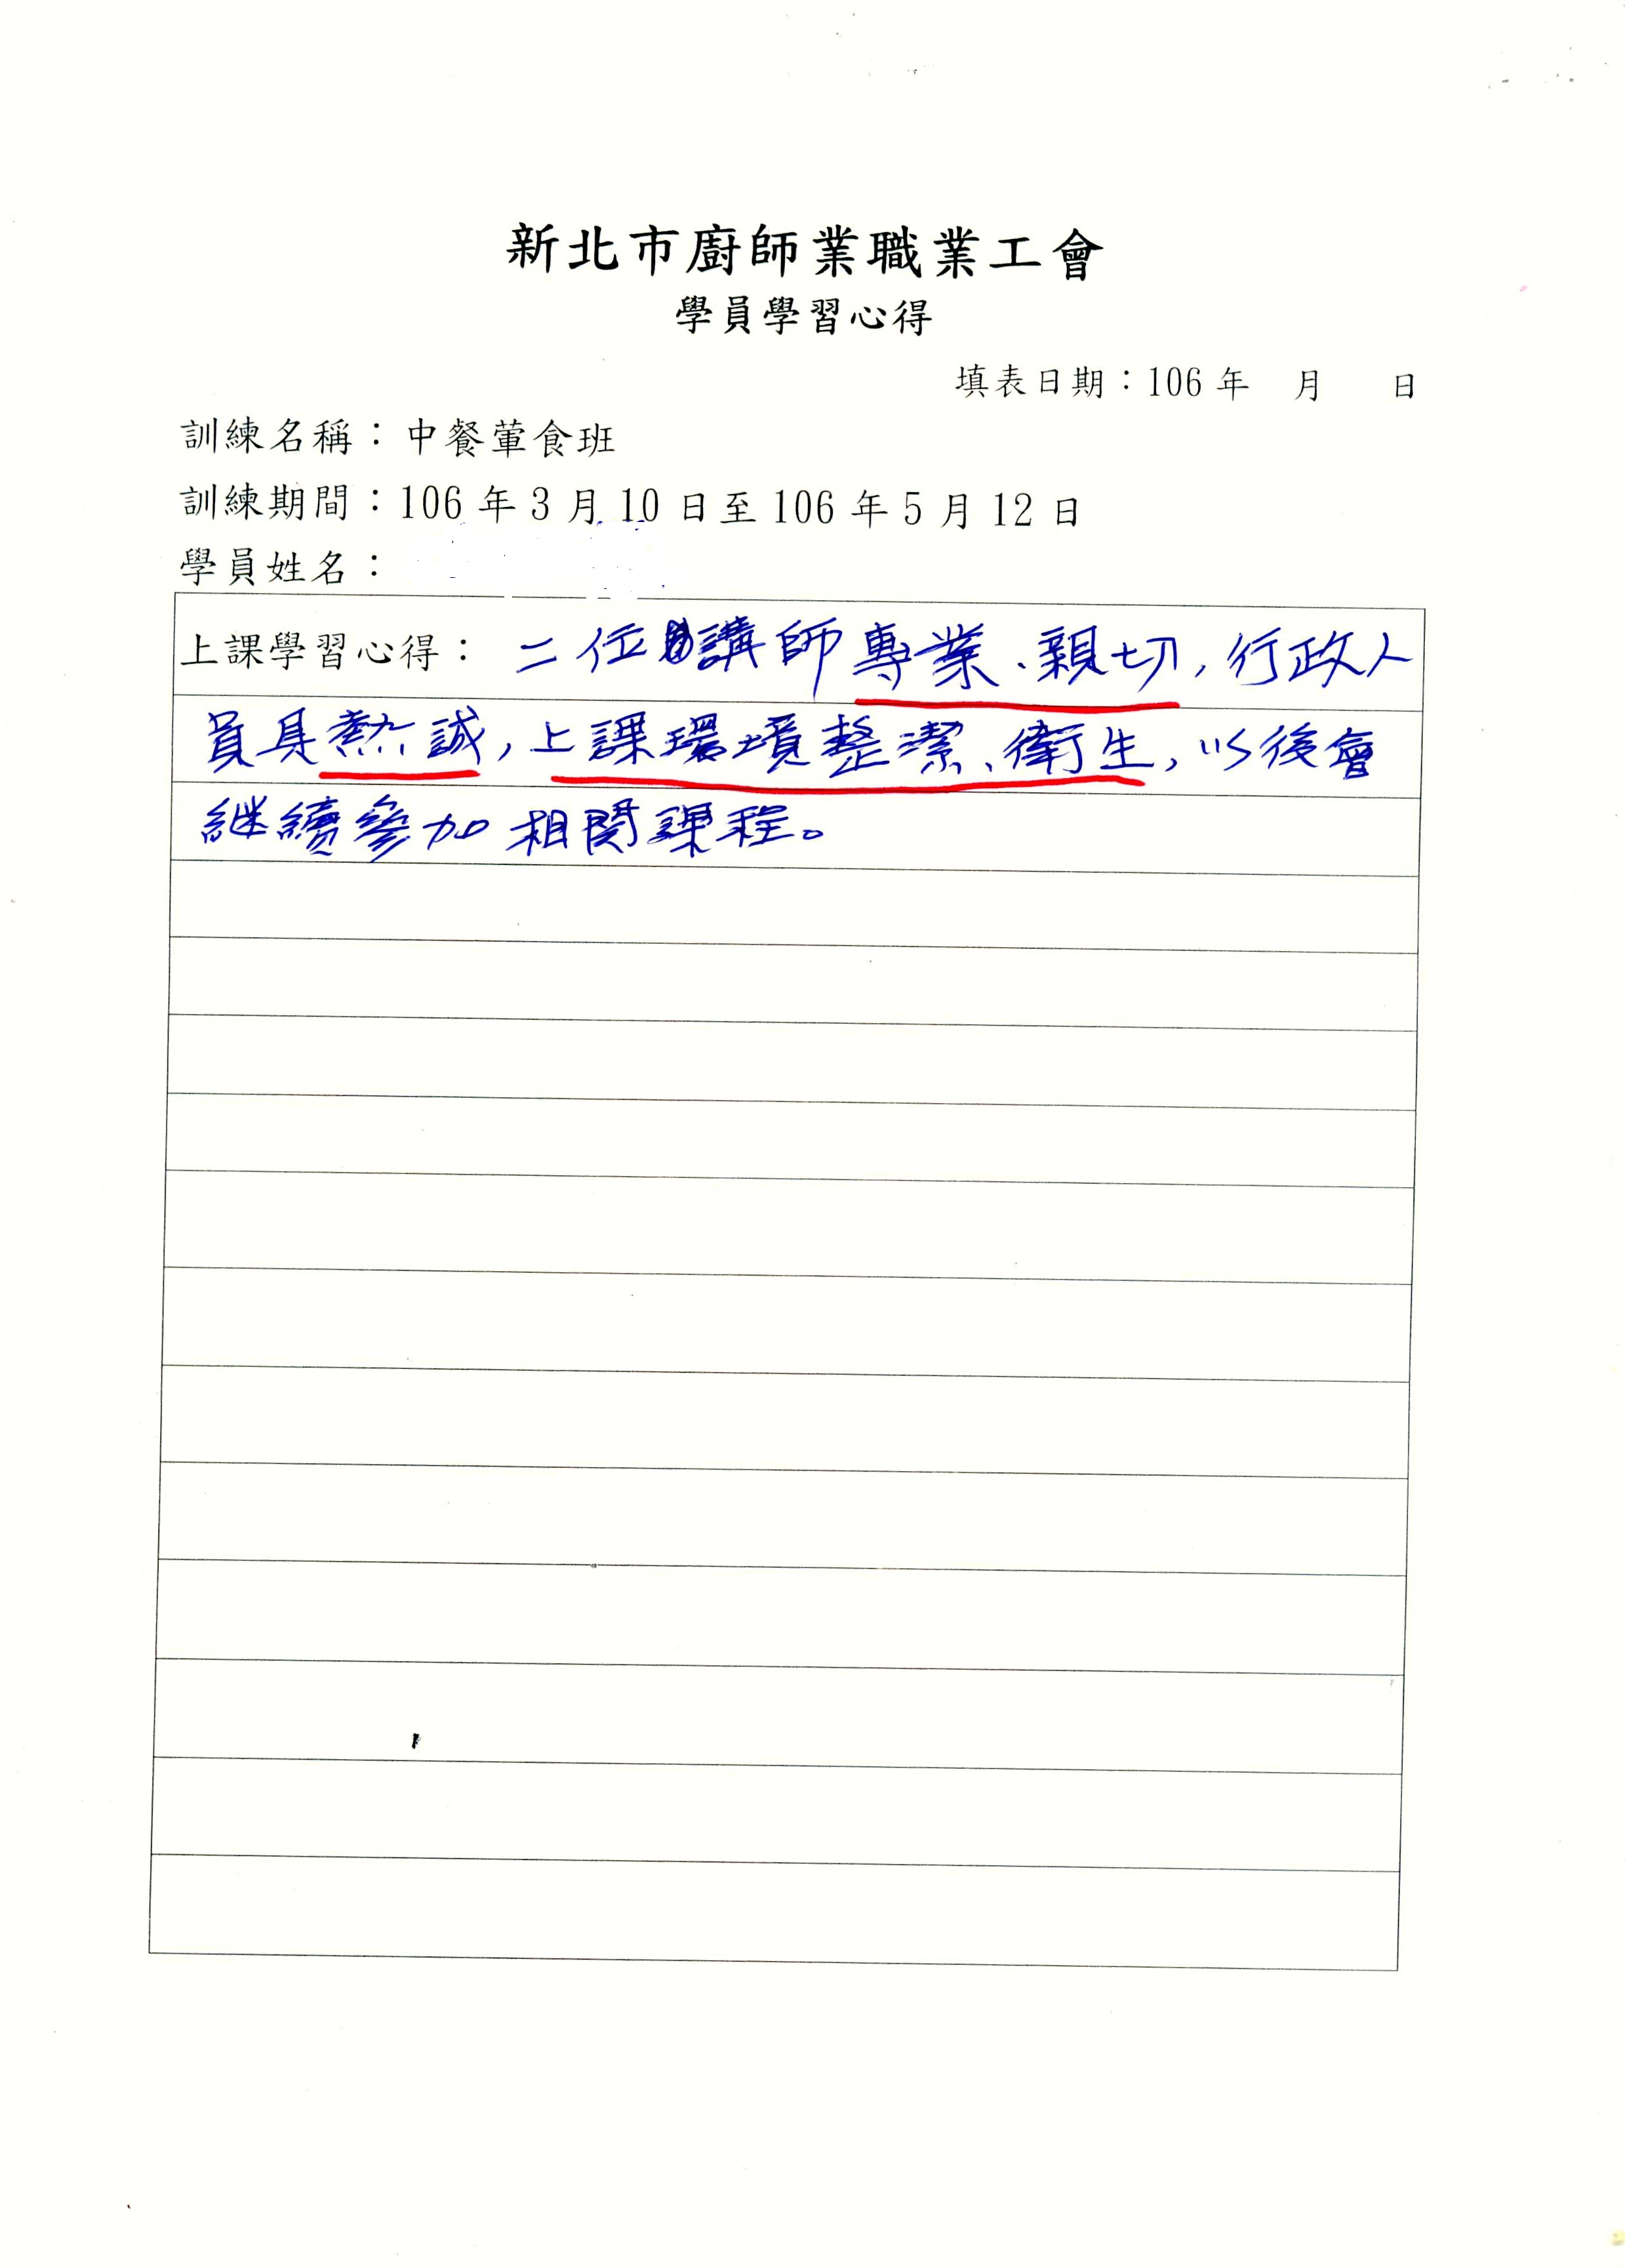 新北市廚師業職業工會
學員學習心得
填表日期：106 年 月 日
訓練名稱：中餐葷食班
訓練期間：106 年 3 月 10 日至 106 年 5 月 12 日
學員姓名：
上課學習心得： 二位講師專業、親切，行政人
員具熱誠，上課環境整潔、衛生，以後會
継續參加相関課程。